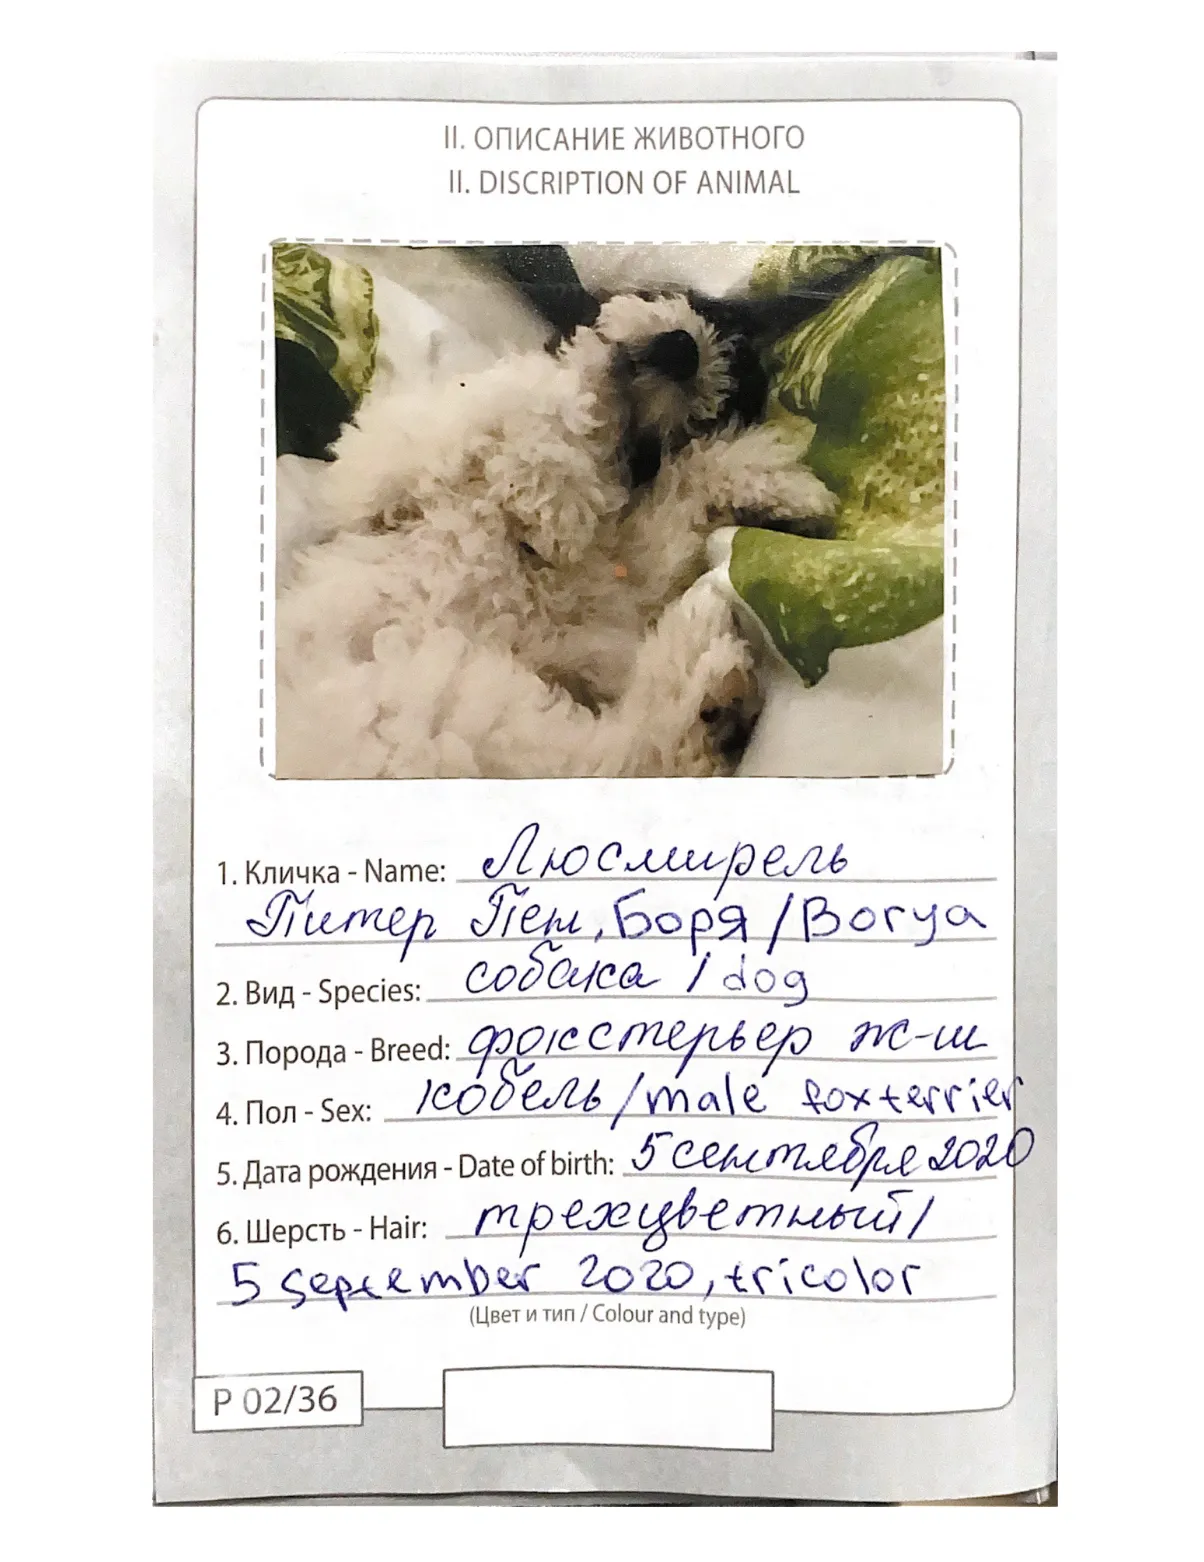 II. ОПИСАНИЕ ЖИВОТНОГО
II. DISCRIPTION OF ANIMAL
1. Кличка - Name: Люсмирель
Питер Пен, Боря / Borya
2. Вид - Species: собака / dog
3. Порода - Breed: фокстерьер ж-ш
4. Пол - Sex: кобель / male foxterrier
5. Дата рождения - Date of birth: 5 сентября 2020
6. Шерсть - Hair: трехцветный /
5 september 2020, tricolor
(Цвет и тип / Colour and type)
P 02/36